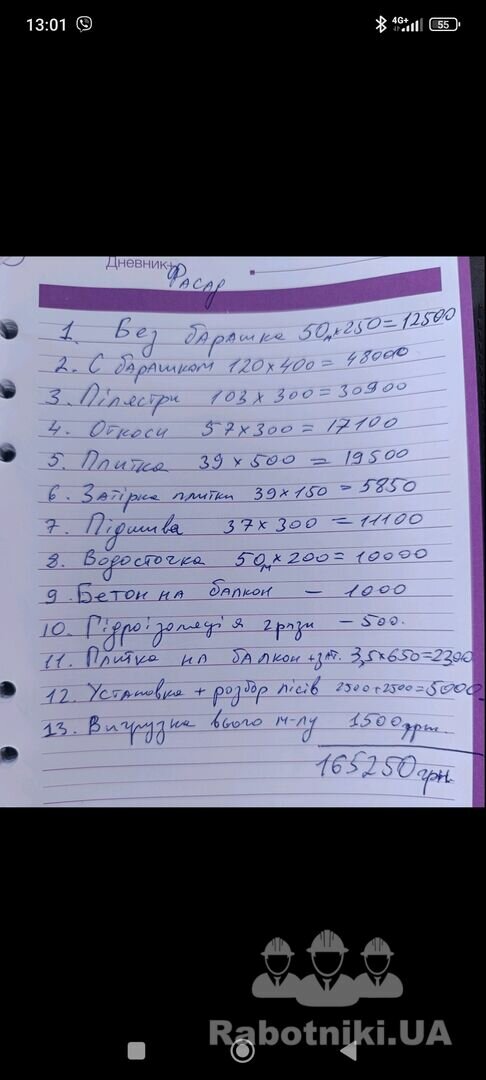 13:01
4G+
55
Дневник
Фасад
1. Без барашка 50м×250=12500
2. С барашком 120×400=48000
3. Пілястри 103×300=30900
4. Откоси 57×300=17100
5. Плитка 39×500=19500
6. Затірка плитки 39×150=5850
7. Підшива 37×300=11100
8. Водосточка 50м×200=10000
9. Бетон на балкон – 1000
10. Гідроізоляція грязи – 500.
11. Плитка на балкон+зат. 3,5×650=2300
12. Установка + розбор лісів 2500+2500=5000
13. Вигрузка всього м-лу 1500грн.
165250грн.
Rabotniki.UA